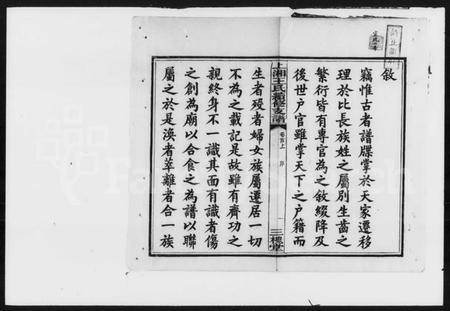 敘
竊惟古者譜牒掌於天家遷移
理於比長族姓之屬別生齒之
繁衍皆有專官為之敘綴降及
後世户官雖掌天下之户籍而
上湘王氏續修支譜
卷首上
序
三槐堂
生者歿者婦女族屬遷居一切
不為之載記是故雖有齊功之
親終身不一識其面有識者傷
之創為廟以合食之為譜以聯
屬之於是渙者萃離者合一族